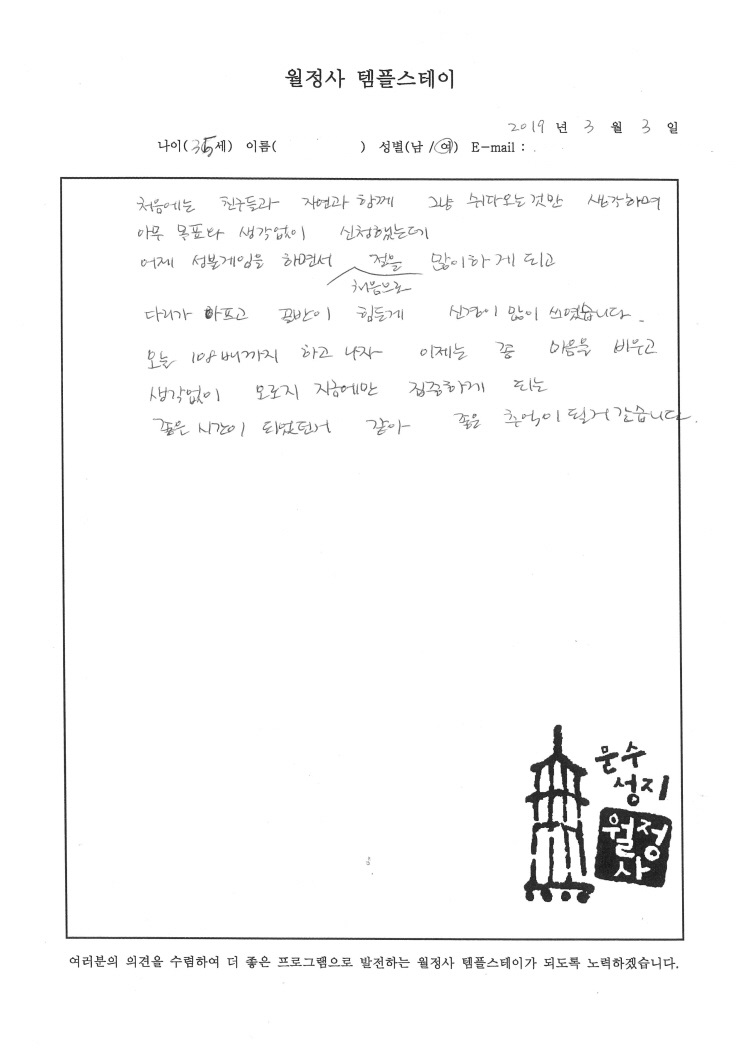 월정사 템플스테이
2019 년 3 월 3 일
나이(35세) 이름( ) 성별(남 /여) E-mail :
처음에는 친구들과 자연과 함께 그냥 쉬다오는것만 생각하며
아무 목표와 생각없이 신청했는데
어제 성불게임을 하면서 절을 많이하게 되고
처음으로
다리가 아프고 골반이 힘들게 신경이 많이 쓰였습니다.
오늘 108배까지 하고 나자 이제는 좀 마음을 비우고
생각없이 오로지 지금에만 집중하게 되는
좋은 시간이 되었던거 같아 좋은 추억이 될거 같습니다.
문수
성지
월정
사
여러분의 의견을 수렴하여 더 좋은 프로그램으로 발전하는 월정사 템플스테이가 되도록 노력하겠습니다.